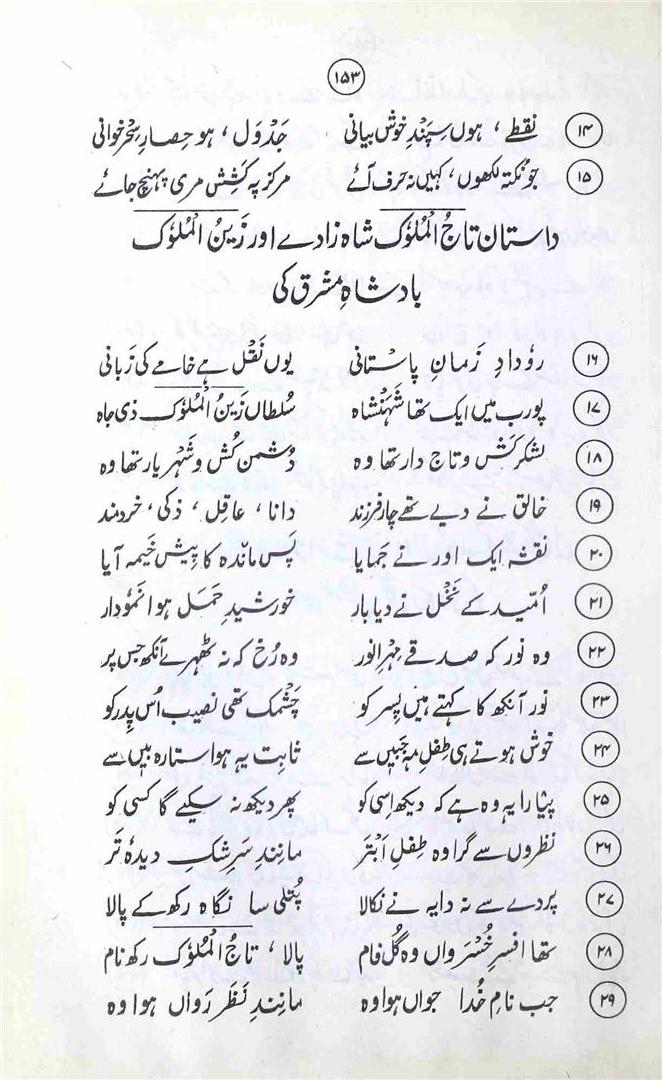 ۱۵۳
۱۴ نقطے ، ہوں سپندِ خوش بیانی جَدْوَل ، ہو حِصارِ سِحر خوانی
۱۵ جو نکتہ لکھوں، کہیں نہ حرف آئے مرکز پہ کَشِش مری پہنچ جائے
داستان تاجُ الْمُلُوٗک شاہ زادے اور زَینُ الْمُلُوٗک
بادشاہِ مشرق کی
۱۶ رؤدادِ زَمانِ پاستانی یوں نَقْل ہے خامے کی زَبانی
۱۷ پورب میں ایک تھا شَہَنْشاہ سُلطاں زَینُ الْمُلُوٗک ذی جاہ
۱۸ لشکر کَش و تاج دار تھا وہ دُشمن کُش و شَہْر یار تھا وہ
۱۹ خالق نے دیے تھے چار فرزند دانا ، عاقِل ، ذکی ، خردمند
۲۰ نقشہ ایک اور نے جَمایا پَس ماندہ کا پیش خیمہ آیا
۲۱ اُمّید کے نَخْل نے دیا بار خورشیدِ حَمَل ہوا نمودار
۲۲ وہ نور کہ صدقے مِہْرِ انور وہ رُخ کہ نہ ٹھہرے آنکھ جس پر
۲۳ نور آنکھ کا کہتے ہیں پِسر کو چَشْمک تھی نصیب اُس پِدر کو
۲۴ خوش ہوتے ہی طِفلِ مہ جَبیں سے ثابت یہ ہوا ستارہ بیں سے
۲۵ پیارا یہ وہ ہے کہ دیکھ اِسی کو پھر دیکھ نہ سکیے گا کسی کو
۲۶ نظروں سے گرا وہ طِفلِ اَبْتَر مانندِ سَرِشکِ دیدۂ تَر
۲۷ پردے سے نہ دایہ نے نکالا پُتلی سا نگاہ رکھ کے پالا
۲۸ تھا افسرِ خُسْرَواں وہ گُل فام پالا ، تاجُ الْمُلُوٗک رکھ نام
۲۹ جب نامِ خُدا جواں ہوا وہ مانندِ نَظَر رَواں ہوا وہ